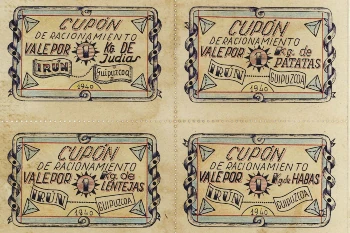 CUPÓN
DE RACIONAMIENTO
VALE POR 1 Kg DE
Judias
IRÚN Guipuzcoa
1940
CUPÓN
DE RACIONAMIENTO
VALE POR 1 Kg. de
PATATAS
IRÚN GUIPUZCOA
1940
CUPÓN
DE RACIONAMIENTO
VALE POR 1 Kg. de
LENTEJAS
IRÚN GUIPUZCOA
1940
CUPÓN
DE RACIONAMIENTO
VALE POR 1 Kg de HABAS
IRÚN GUIPUZCOA
1940